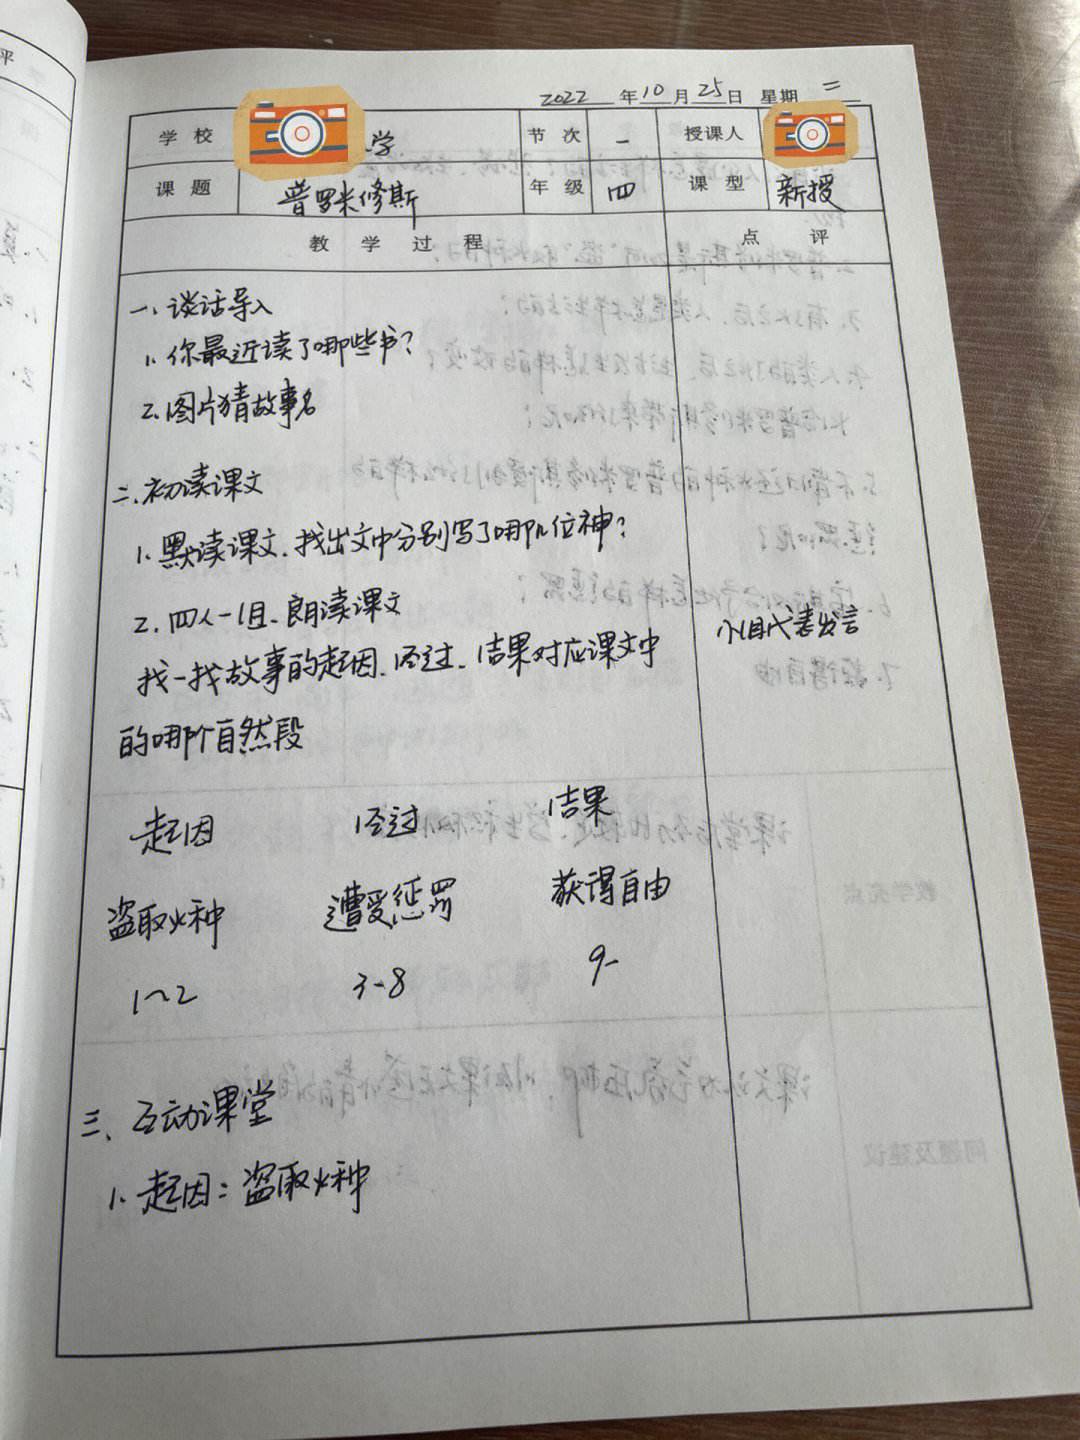 2022年10月25日 星期二
学校 学 节次 一 授课人
课题 普罗米修斯 年级 四 课型 新授
教学过程 点评
一、谈话导入
1、你最近读了哪些书？
2、图片猜故事名
二、初读课文
1、默读课文、找出文中分别写了哪几位神？
2、四人一组、朗读课文
小组代表发言
找一找故事的起因、经过、结果对应课文中
的哪个自然段
起因 经过 结果
盗取火种 遭受惩罚 获得自由
1~2 3-8 9-
三、互动课堂
1、起因：盗取火种